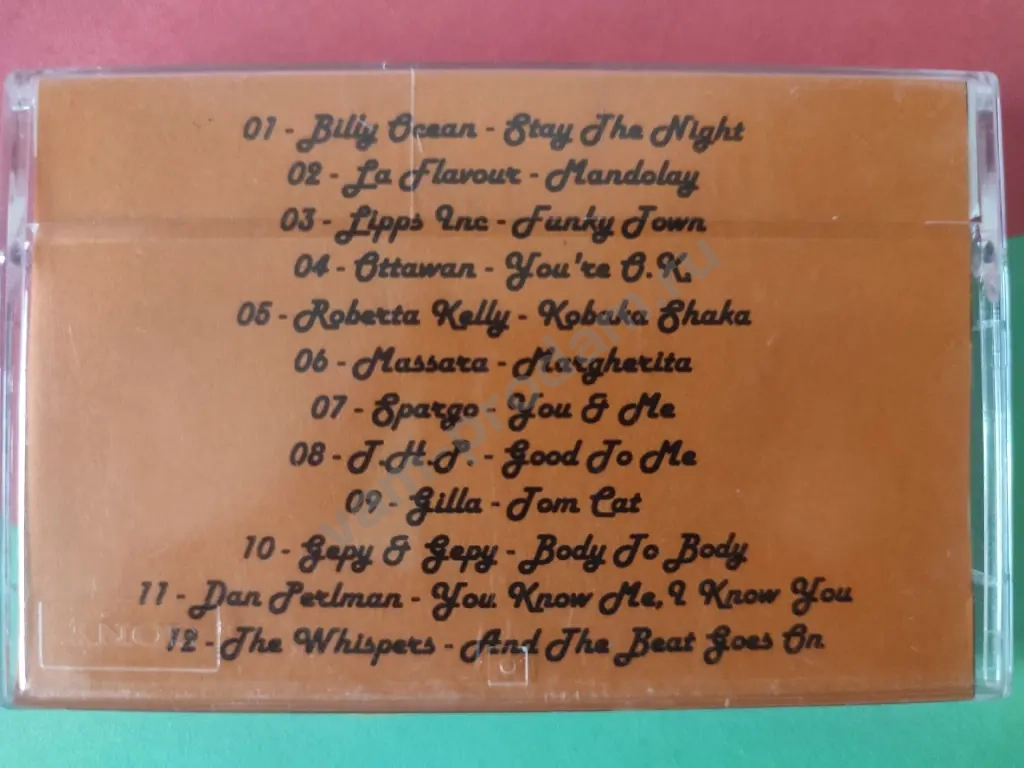 01 - Billy Ocean - Stay The Night
02 - La Flavour - Mandolay
03 - Lipps Inc - Funky Town
04 - Ottawan - You're O.K.
05 - Roberta Kelly - Kobaka Shaka
06 - Massara - Margherita
07 - Spargo - You & Me
08 - T.H.P. - Good To Me
09 - Gilla - Tom Cat
10 - Gepy & Gepy - Body To Body
11 - Dan Perlman - You Know Me, I Know You
12 - The Whispers - And The Beat Goes On